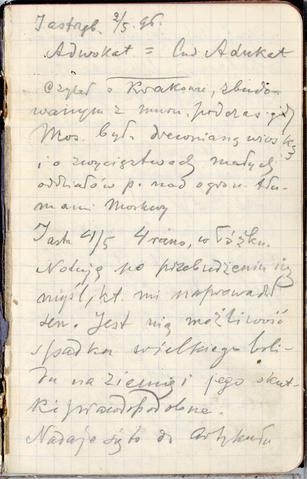 Jastrzęb. 2/5. 96.
Adwokat = Cud Adukat
Czytał o Krakowie, zbudo-
wanym z muru, podczas gdy
Mos. był drewnianą wioską
i o zwycięstwach małych
oddziałów p. nad ogrom. tłu-
mami Moskwy
Jastrz 4/5 4 rano, w łóżku.
Notuję po przebudzeniu się
myśl, kt. mi naprowadził
sen. Jest nią możliwość
spadku wielkiego boli-
du na ziemię i jego skut-
ki prawdopodobne.
Nadaje się to do artykułu